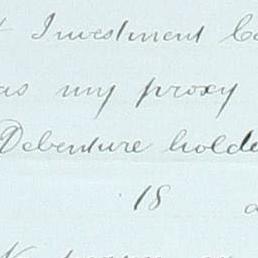 t Investment Co
as my proxy
Debenture holde
18 a